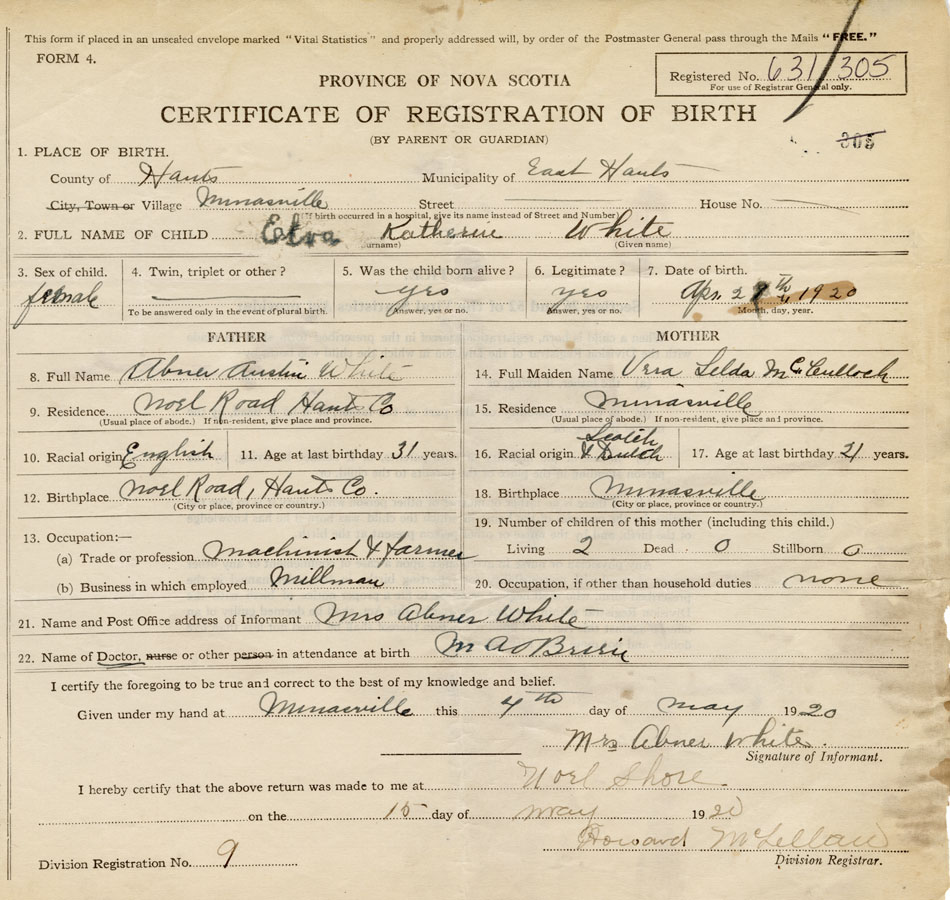 This form if placed in an unsealed envelope marked "Vital Statistics" and properly addressed will, by order of the Postmaster General pass through the Mails "FREE."
FORM 4.
Registered No. 631/305
For use of Registrar General only.
PROVINCE OF NOVA SCOTIA
CERTIFICATE OF REGISTRATION OF BIRTH
(BY PARENT OR GUARDIAN)
305
1. PLACE OF BIRTH.
County of Hants Municipality of East Hants
City, Town or Village Minasville Street House No.
(If birth occurred in a hospital, give its name instead of Street and Number)
2. FULL NAME OF CHILD Elva Katherine White
(Surname) (Given name)
3. Sex of child. 4. Twin, triplet or other? 5. Was the child born alive? 6. Legitimate? 7. Date of birth.
female yes yes Apr. 29th 1920
To be answered only in the event of plural birth. Answer, yes or no. Answer, yes or no. Month, day, year.
FATHER MOTHER
8. Full Name Abner Austin White 14. Full Maiden Name Vera Selda McCulloch
9. Residence. Noel Road Hants Co 15. Residence Minasville
(Usual place of abode.) If non-resident, give place and province. (Usual place of abode.) If non-resident, give place and province.
10. Racial origin English 11. Age at last birthday 31 years. 16. Racial origin Scotch & Dutch 17. Age at last birthday 21 years.
12. Birthplace Noel Road, Hants Co. 18. Birthplace Minasville
(City or place, province or country.) (City or place, province or country.)
13. Occupation:— 19. Number of children of this mother (including this child.)
(a) Trade or profession Machinist & farmer Living 2 Dead 0 Stillborn 0
(b) Business in which employed Millman 20. Occupation, if other than household duties none
21. Name and Post Office address of Informant Mrs Abner White
22. Name of Doctor, nurse or other person in attendance at birth M A O'Brien
I certify the foregoing to be true and correct to the best of my knowledge and belief.
Given under my hand at Minasville this 4th day of May 1920
Mrs Abner White.
Signature of Informant.
I hereby certify that the above return was made to me at Noel Shore
on the 15 day of May 1920
Howard McLellan
Division Registrar.
Division Registration No. 9